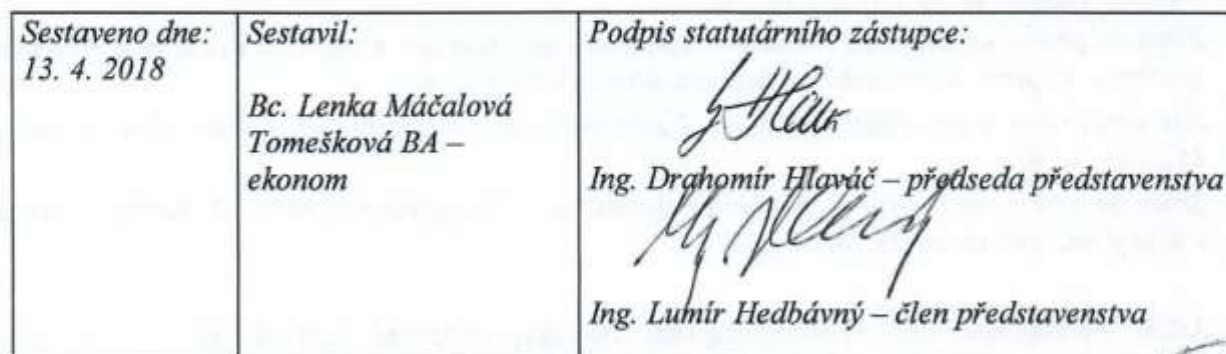 Sestaveno dne:
13. 4. 2018
Sestavil:
Bc. Lenka Máčalová
Tomešková BA –
ekonom
Podpis statutárního zástupce:
Ing. Drahomír Hlaváč – předseda představenstva
Ing. Lumír Hedbávný – člen představenstva